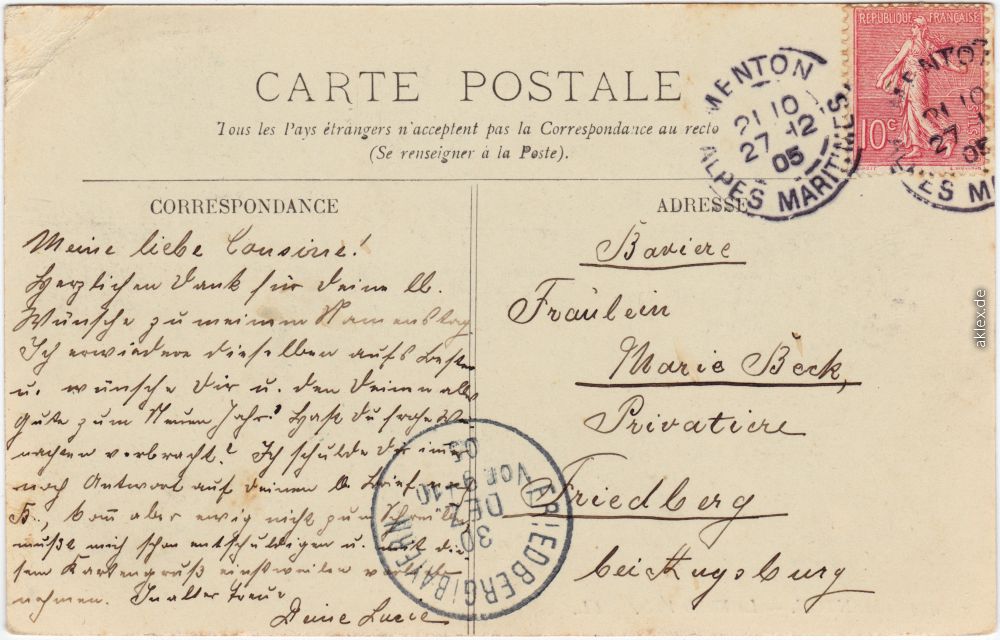 CARTE POSTALE
Tous les Pays étrangers n'acceptent pas la Correspondance au recto
(Se renseigner à la Poste).
RÉPUBLIQUE FRANÇAISE
10c
MENTON
21 10
27 -12
05
ALPES MARITIMES
MENTON
21 10
27
05
CORRESPONDANCE
Meine liebe Cousine!
Herzlichen Dank für Deine lb.
Wünsche zu meinem Namenstag
Ich erwiedere dieselben aufs Beste
u. wünsche Dir u. den Deinen alles
Gute zum Neuen Jahr! Hast Du frohe We
nachten verbracht? Ich schulde Dir im
noch Antwort auf Deinen lb. Brief
aber ewig nicht zum
mußt mich schon entschuldigen u. mit die
sem Kartengruß einstweilen
nehmen. In alter Treue
Deine Lucie
ADRESSE
Baviere
Fräulein
Marie Beck,
Privatiere
Friedberg
bei Augsburg
FRIEDBERG (BAYERN)
30
DEZ
Vor 9-10
05
aklex.de